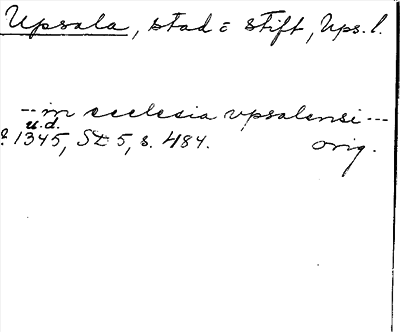 Upsala, stad o stift, Ups. l.
-- in ecclesia vpsalensi ---
u.d.
? 1345, SD 5, s. 484. orig.